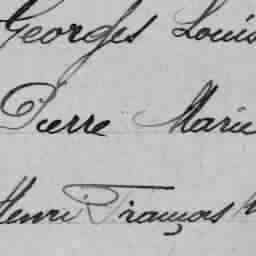 Georges Louis
Pierre Marie
Henri François